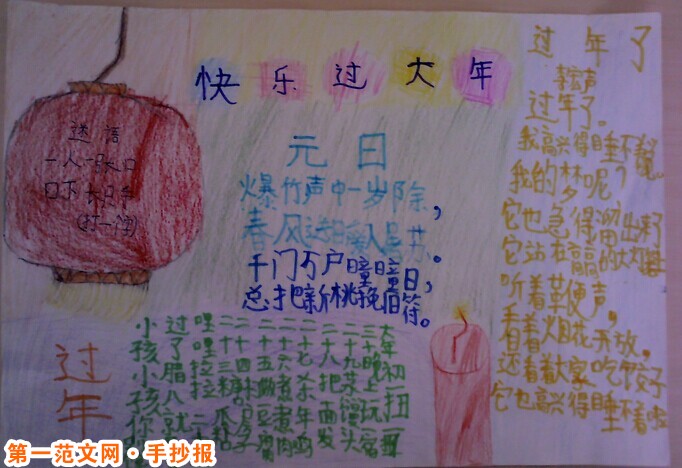 快乐过大年
迷语
一人一张口
口下长只手
(打一
元日
爆竹声中一岁除，
春风送暖入屠苏。
千门万户瞳瞳日，
总把新桃挽旧符。
过年
小孩小孩你
过了腊八就
哩哩拉拉二
二十三糖瓜粘
二十四扫房子
二十五做豆腐
二十六煮煮肉
二十七杀年鸡
二十八把面发
二十九蒸馒头
三十晚上玩一宵
大年初一扭一扭
过年了
过年了。
我高兴得睡不着
我的梦呢？
它也急得溜出来了
它站在高高的大
听着革便声，
看着烟花开放，
还看着大家吃饺子
它也高兴得睡不着啦
第一范文网·手抄报